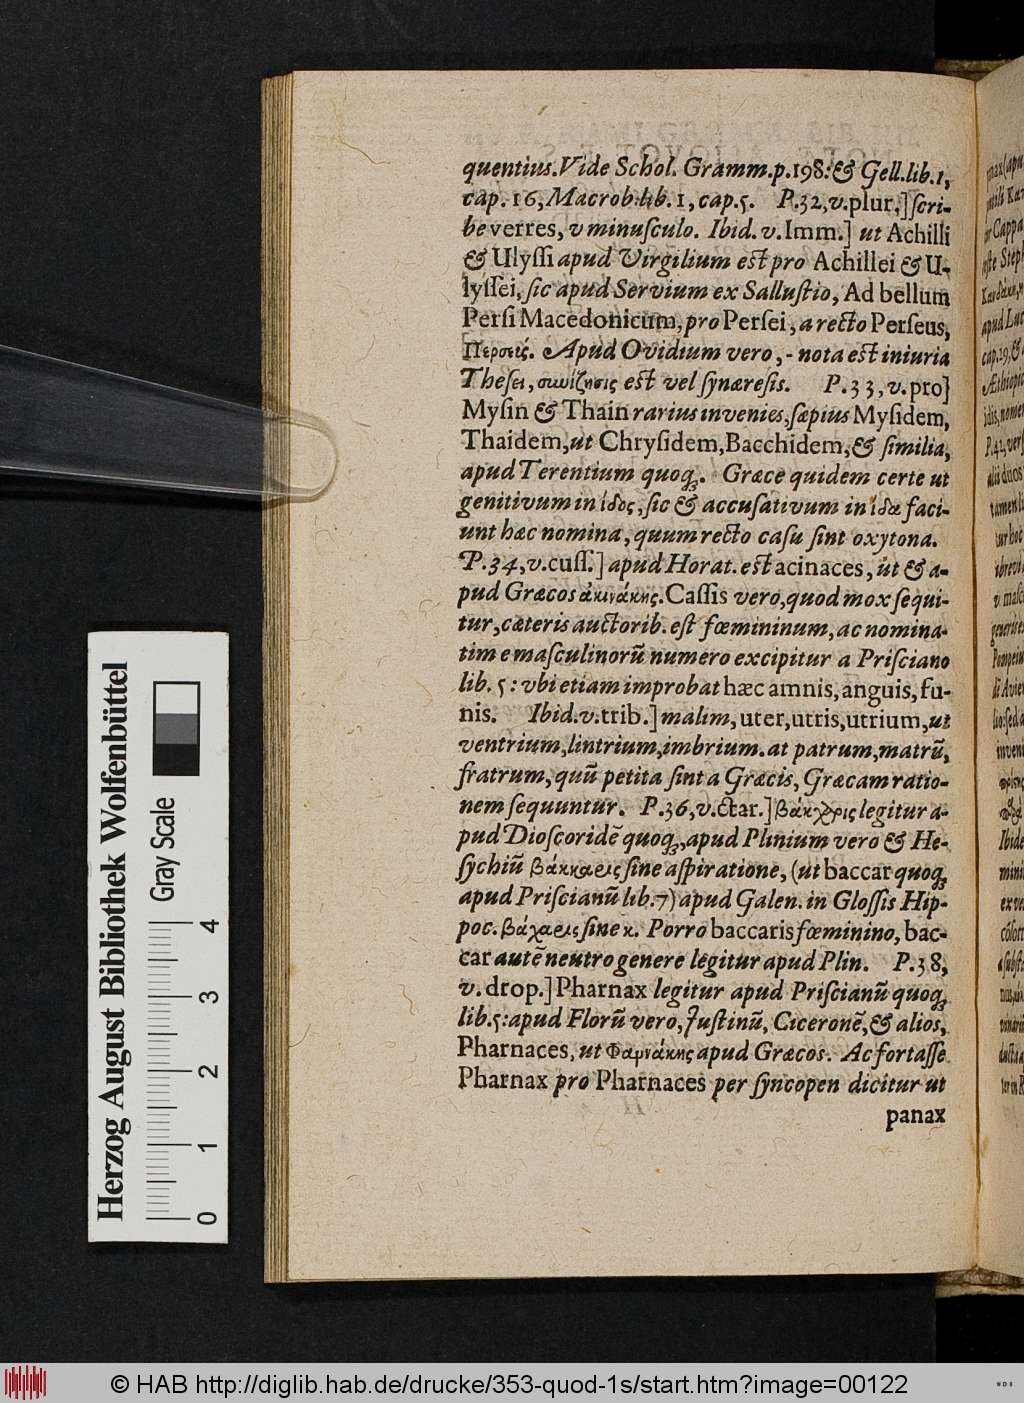 quentius. Vide Schol. Gramm. p. 198: & Gell. lib. 1,
cap. 16, Macrob. lib. 1, cap. 5. P. 32, v. plur.] ſcri-
be verres, v minuſculo. Ibid. v. Imm.] ut Achilli
& Ulyſſi apud Virgilium eſt pro Achillei & U-
lyſſei, ſic apud Servium ex Salluſtio, Ad bellum
Perſi Macedonicum, pro Perſei, a recto Perſeus,
Περσεύς. Apud Ovidium vero, - nota eſt iniuria
Theſei, συνίζησις eſt vel ſynæreſis. P. 33, v. pro]
Myſin & Thain rarius invenies, ſæpius Myſidem,
Thaidem, ut Chryſidem, Bacchidem, & ſimilia,
apud Terentium quoq;. Græce quidem certe ut
genitivum in ίδος, ſic & accuſativum in ίδα faci-
unt hæc nomina, quum recto caſu ſint oxytona.
P. 34, v. cuſſ.] apud Horat. eſt acinaces, ut & a-
pud Græcos ἀκινάκης. Caſſis vero, quod mox ſequi-
tur, cæteris auctorib. eſt fœmininum, ac nomina-
tim e maſculinorū numero excipitur a Priſciano
lib. 5: ubi etiam improbat hæc amnis, anguis, fu-
nis. Ibid. v. trib.] malim, uter, utris, utrium, ut
ventrium, lintrium, imbrium. at patrum, matrū,
fratrum, quū petita ſint a Græcis, Græcam ratio-
nem ſequuntur. P. 36, v. ctar.] βάκχαρις legitur a-
pud Dioſcoridē quoq;, apud Plinium vero & He-
ſychiū βάκκαρις ſine aſpiratione, (ut baccar quoq;
apud Priſcianū lib. 7) apud Galen. in Gloſſis Hip-
poc. βάχαρις ſine κ. Porro baccaris fœminino, bac-
car autē neutro genere legitur apud Plin. P. 38,
v. drop.] Pharnax legitur apud Priſcianū quoq;
lib. 5: apud Florū vero, Juſtinū, Ciceronē, & alios,
Pharnaces, ut Φαρνάκης apud Græcos. Ac fortaſſe
Pharnax pro Pharnaces per ſyncopen dicitur ut
panax
Herzog August Bibliothek Wolfenbüttel
Gray Scale
0 1 2 3 4
© HAB http://diglib.hab.de/drucke/353-quod-1s/start.htm?image=00122